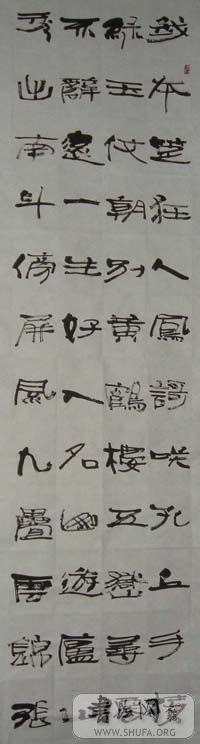 我本楚狂人鳳謌咲孔丘手
綠玉杖朝別黃鶴樓五嶽尋
不辭遠一生好入名山遊廬山
秀出南斗傍屏風九疊雲錦張
書法网
WWW.SHUFA.ORG